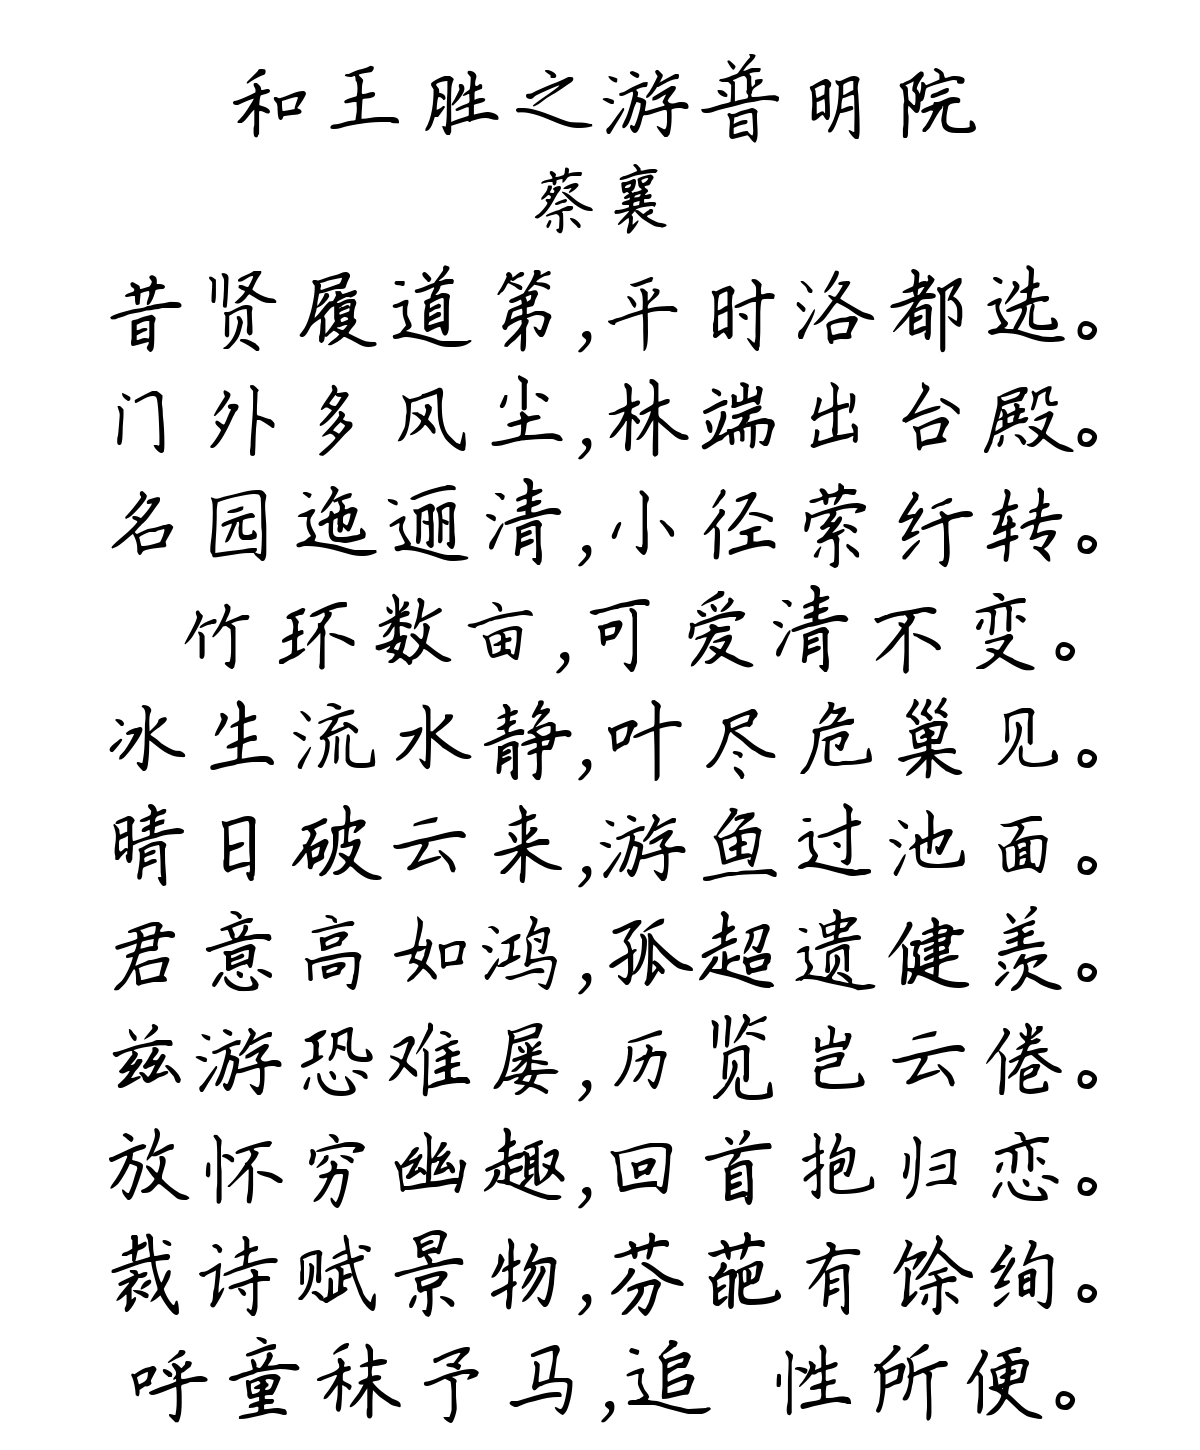 和王胜之游普明院
蔡襄
昔贤履道第,平时洛都选。
门外多风尘,林端出台殿。
名园迤逦清,小径萦纡转。
竹环数亩,可爱清不变。
冰生流水静,叶尽危巢见。
晴日破云来,游鱼过池面。
君意高如鸿,孤超遗健羡。
兹游恐难屡,历览岂云倦。
放怀穷幽趣,回首抱归恋。
裁诗赋景物,芬葩有馀绚。
呼童秣予马,追 性所便。